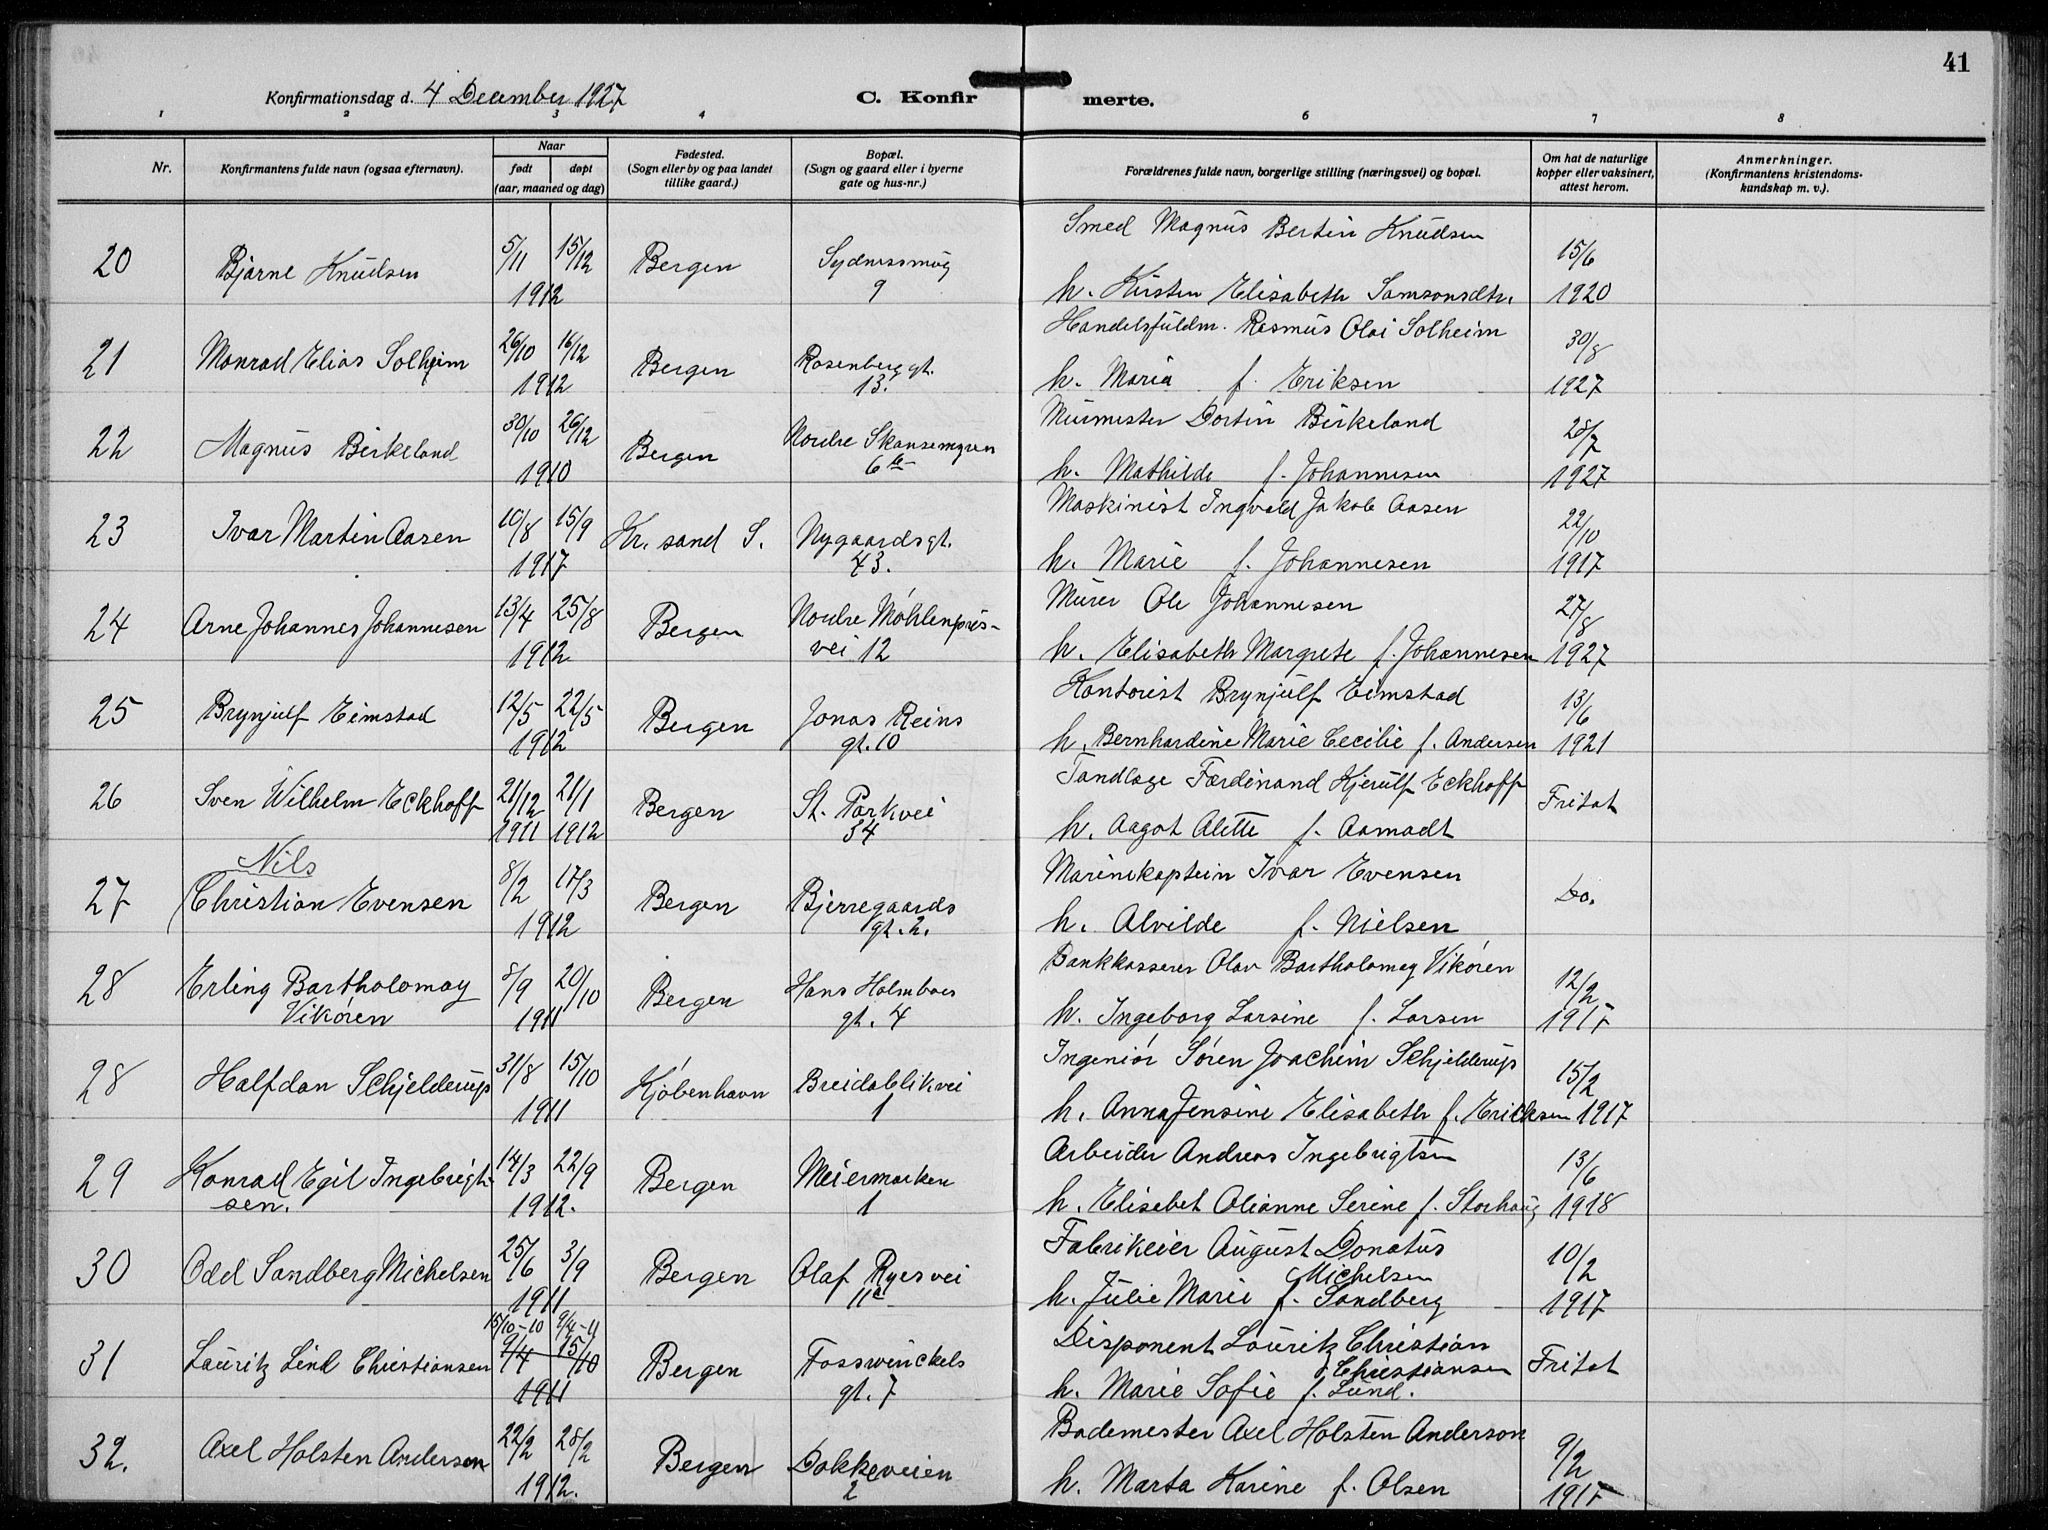 41
Konfirmationsdag d. 4 December 1927
C. Konfir merte.
1 2 3 4 5 6 7 8
Nr.
Konfirmantens fulde navn (ogsaa efternavn).
Naar
født døpt
(aar, maaned og dag)
Fødested.
(Sogn eller by og paa landet
tillike gaard.)
Bopæl.
(Sogn og gaard eller i byerne
gate og hus-nr.)
Forældrenes fulde navn, borgerlige stilling (næringsvei) og bopæl.
Om hat de naturlige
kopper eller vaksinert,
attest herom.
Anmerkninger.
(Konfirmantens kristendoms-
kundskap m. v.).
Smed Magnus Bertin Knudsen
20 Bjarne Knudsen 5/11 15/12 Bergen Sydnessmug 15/6
1912 9 h. Kirsten Elisabeth Samsonsdtr. 1920
Handelsfuldm. Rasmus Olai Solheim
21 Monrad Elias Solheim 26/10 16/12 Bergen Rosenberg gt. 30/8
1912 13. h. Maria f. Eriksen 1927
Murmester Dortin Birkeland
22 Magnus Birkeland 30/10 26/12 Bergen Nordre Skansemyren 28/7
1910 6 h. Mathilde f. Johannesen 1927
Maskinist Ingvald Jakob Aasen
23 Ivar Martin Aasen 10/8 15/9 Kr. sand S. Nygaardsgt. 22/10
1917 43. h. Marie f. Johannesen 1917
Murer Ole Johannesen
24 Arne Johannes Johannesen 13/4 25/8 Bergen Nordre Møhlenpris- 27/8
1912 vei 12 h. Elisabeth Margrete f. Johannesen 1927
Kontorist Brynjulf Eimstad
25 Brynjulf Eimstad 12/5 22/5 Bergen Jonas Reins 13/6
1912 gt. 10 h. Bernhardine Marie Cecilie f. Andersen 1921
Tandlæge Færdinand Kjerulf Eckhoff
26 Sven Wilhelm Eckhoff 21/12 21/1 Bergen St. Parkvei Fritat
1911 1912 34 h. Aagot Alette f. Aamodt
Nils
Marinekaptein Ivar Evensen
27 Christian Evensen 8/2 17/3 Bergen Bjerregaards Do.
1912 gt. 2. h. Alvilde f. Nielsen
Bankkasserer Olav Bartholomay Vikøren
28 Erling Bartholomay 8/9 20/10 Bergen Hans Holmboes 12/2
Vikøren 1911 gt. 4 h. Ingeborg Larsine f. Larsen 1917
Ingeniør Søren Joachim Schjelderup
28 Halfdan Schjelderup 31/8 15/10 Kjøbenhavn Breidablikvei 15/2
1911 1 h. Anna Jensine Elisabeth f. Ericksen 1917
Arbeider Andreas Ingebrigtsen
29 Konrad Egil Ingebrigt- 14/3 22/9 Bergen Meiermarken 13/6
sen. 1912. 1 h. Elisebet Olianne Serine f. Storhaug 1918
Fabrikeier August Donatus
30 Odd Sandberg Michelsen 25/6 3/9 Bergen Olaf Ryesvei 10/2
Michelsen
1911 11a h. Julie Marie f. Sandberg 1917
15/10-10 9/4-11
Disponent Lauritz Christian
31 Lauritz Lind Christiansen 9/4 15/10 Bergen Fosswinckels Christiansen Fritat
1911 gt. 7 h. Marie Sofie f. Lund.
Bademester Axel Holsten Anderson
32. Axel Holsten Andersen 22/2 28/2 Bergen Dokkeveien 9/2
1912. 2 h. Marta Karine f. Olsen 1917